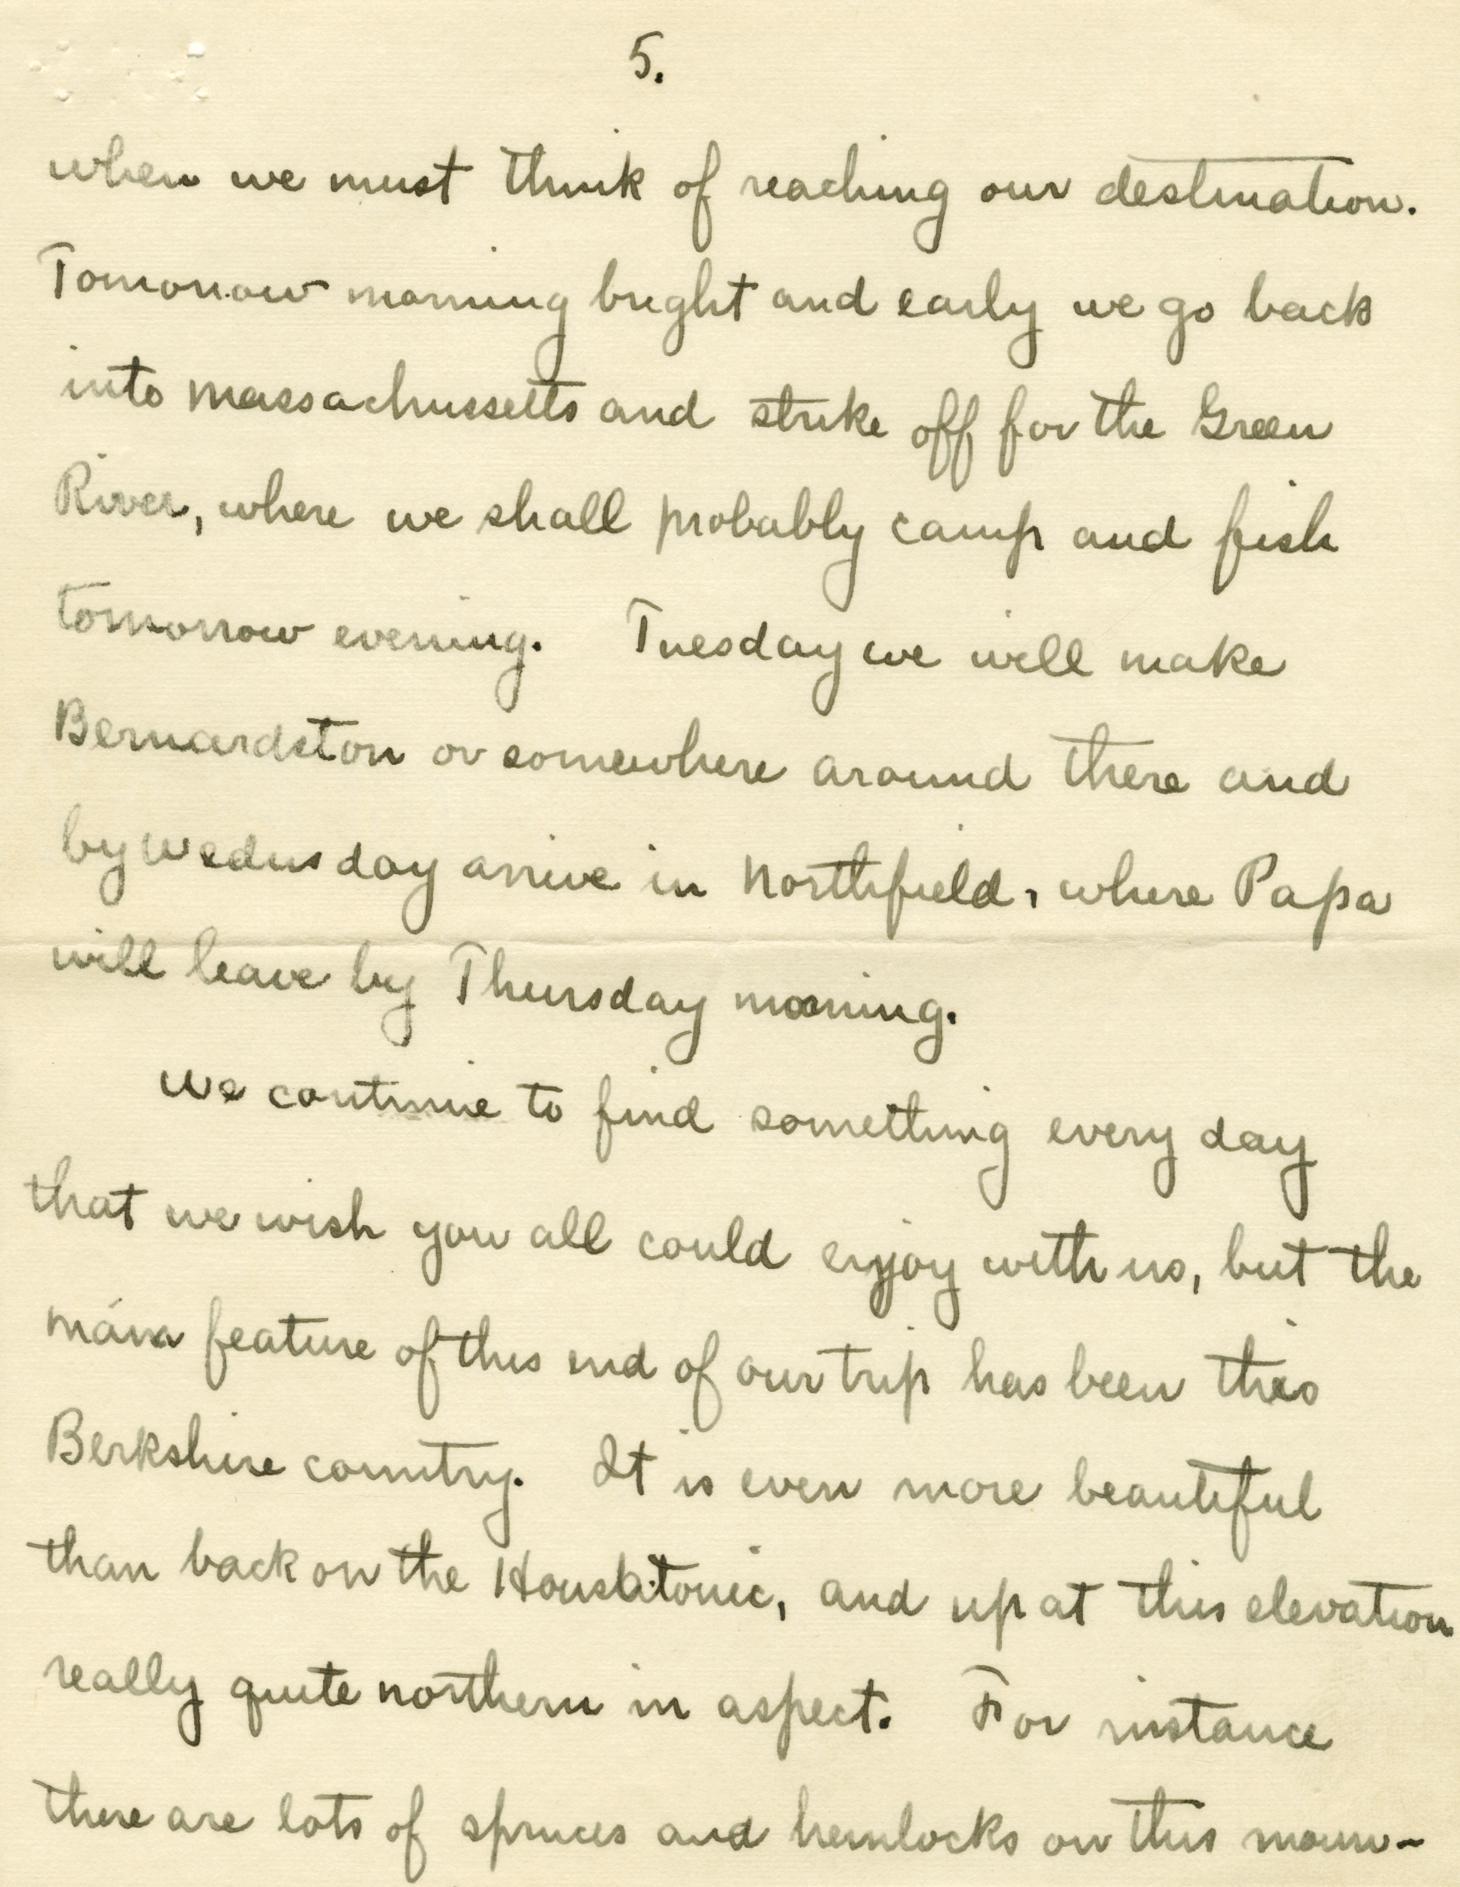 5.
when we must think of reaching our destination.
Tomorrow morning bright and early we go back
into Massachussetts and strike off for the Green
River, where we shall probably camp and fish
tomorrow evening. Tuesday we will make
Bernardston or somewhere around there and
by Wednsday arrive in Northfield, where Papa
will leave by Thursday morning.
We continue to find something every day
that we wish you all could enjoy with us, but the
main feature of this end of our trip has been this
Berkshire country. It is even more beautiful
than back on the Housatonic, and up at this elevation
really quite northern in aspect. For instance
there are lots of spruces and hemlocks on this moun-